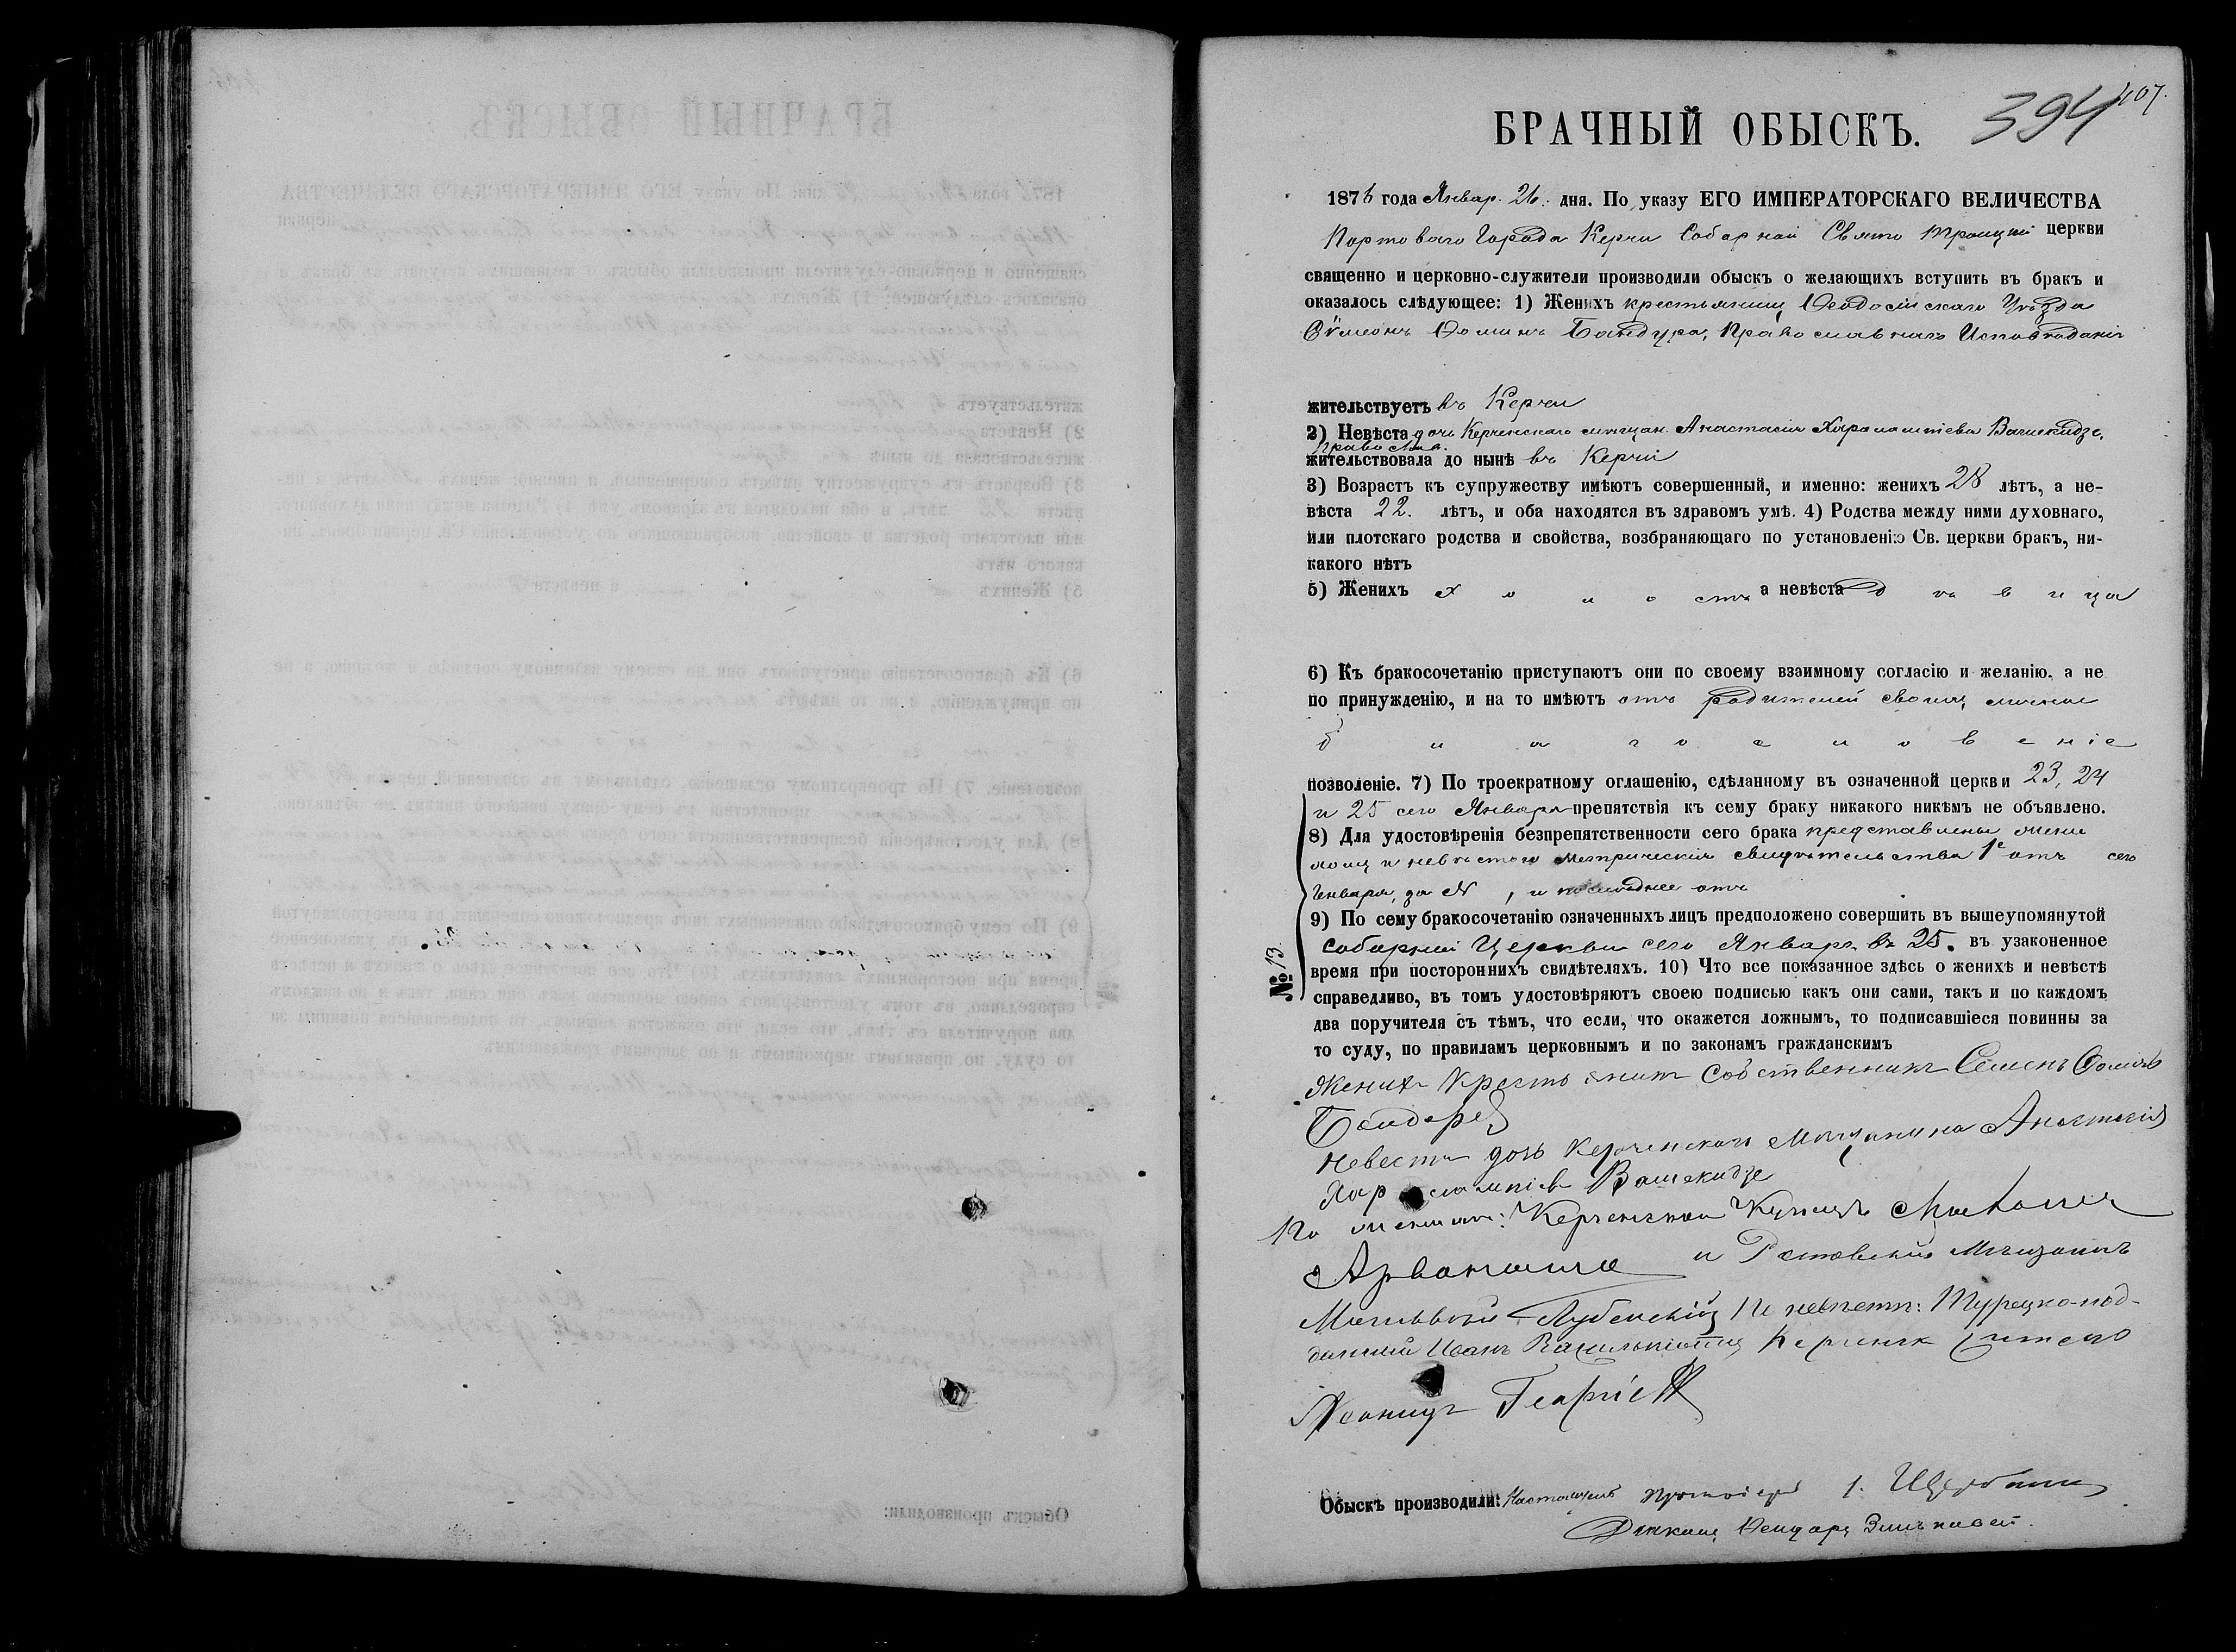 394 407.
БРАЧНЫЙ ОБЫСКЪ.
1876 года Январ. 26. дня. По указу ЕГО ИМПЕРАТОРСКАГО ВЕЛИЧЕСТВА
Портоваго Города Керчи Соборной Свято Троицкой церкви
священно и церковно-служители производили обыскъ о желающихъ вступить въ бракъ и
оказалось слѣдующее: 1) Женихъ крестьянинъ Ѳеодосійскаго Уѣзда
Сѵмеонъ Ѳоминъ Бандура, Православнаго Исповѣданія
жительствуетъ въ Керчи
2) Невѣста дочь Керченскаго мѣщан. Анастасія Харалампіева
Православ.
жительствовала до нынѣ въ Керчи
3) Возрастъ къ супружеству имѣютъ совершенный, и именно: женихъ 28 лѣтъ, а не-
вѣста 22. лѣтъ, и оба находятся въ здравомъ умѣ. 4) Родства между ними духовнаго,
или плотскаго родства и свойства, возбраняющаго по установленію Св. церкви бракъ, ни-
какого нѣтъ
5) Женихъ холостъ а невѣста дѣвица
6) Къ бракосочетанію приступаютъ они по своему взаимному согласію и желанію, а не
по принужденію, и на то имѣютъ отъ родителей своихъ личное
благословеніе
позволеніе. 7) По троекратному оглашенію, сдѣланному въ означенной церкви 23, 24
и 25 сего Января препятствія къ сему браку никакого никѣмъ не объявлено.
8) Для удостовѣренія безпрепятственности сего брака представлены жени
хомъ и невѣстою метрическія свидѣтельства 1е отъ сего
Января, за №, и последнее отъ
9) По сему бракосочетанію означенныхъ лицъ предположено совершить въ вышеупомянутой
соборной Церкви сего Января въ 25. въ узаконенное
№ 13.
время при постороннихъ свидѣтеляхъ. 10) Что все показачное здѣсь о женихѣ и невѣстѣ
справедливо, въ томъ удостовѣряютъ своею подписью какъ они сами, такъ и по каждомъ
два поручителя съ тѣмъ, что если, что окажется ложнымъ, то подписавшіеся повинны за
то суду, по правиламъ церковнымъ и по законамъ гражданскимъ
Жених Крестьянин Собственникъ Семенъ
невеста дочь Керченскаго Мѣщанина Анастасія
Харлампіев
По женихѣ: Керченской Купецъ
и Ростовскій Мѣщанинъ
По невѣстѣ: Турецко-под-
данный Иванъ
Обыскъ производили: Настоятель протоіерей І.